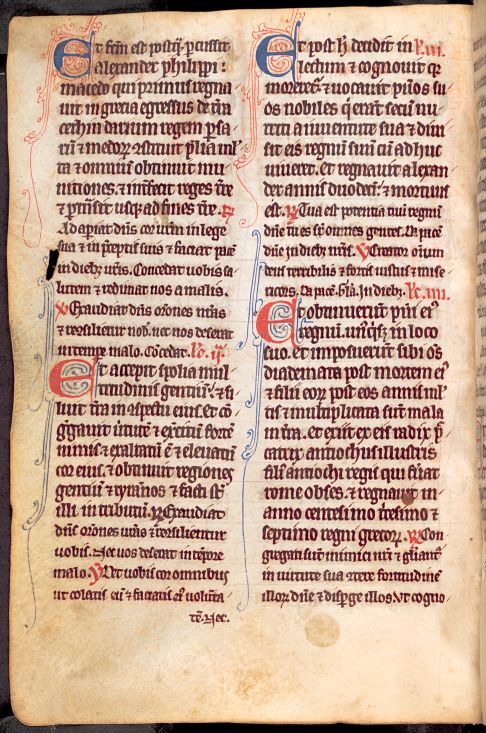 Et fcm̄ est postq̄ pcussit
alexander philippi :
macedo qui primus regna
uit in grecia egressus de t̄ra
cethim darium regem psa
rū ⁊ medoꝝ 9stituit p̄lia ml
ta ⁊ omniū obtinuit mu
nitiones. ⁊ int̄fecit reges t̄re
⁊ p̄tn̄sit usqꝫ ad fines t̄re. ꝶ
Adapiat dn̄s cor ur̄m in lege
sua ⁊ in p̄ceptis suis ⁊ faciat pacē
in diebꝫ ur̄is. Concedat uobis sa
lutem ⁊ redimat nos a malis.
℣ Exaudiat dn̄s or̄ones ur̄as
⁊ recōsilietur nob̄. nec nos deserat
in tempe malo. Cōcedat. Lc̄. ij.
Et accepit spolia mul
titudinis gentiū. ⁊ si
luit t̄ra in 9spectu eius. et cō
g̓gauit u̓tutē ⁊ exc̓itū fortē
nimis ⁊ exaltatū ē ⁊ eleuatū
cor eius. ⁊ obtinuit regiones
gentiū ⁊ tyrānos ⁊ facti st̄
illi in tributū. ꝶ Exaudiat
dn̄s or̄ones ur̄as ⁊ recōsilietur
uobis. Nec uos deserat in tēpore
malo. ℣ Det uobis cor omnibus
ut colatis eū ⁊ faciatis ei᷒ volūta-
tē. Nec.
Et post h̄ decidit in Lc̄. iii.
lectum ⁊ cognouit qꝫ
moreret̄. ⁊ uocauit pu̓os su
os nobiles q̓ erāt secū nu
triti a iuuentute sua ⁊ diui
sit eis regnū suū cū adhuc
uiueret. et regnauit alexan
der annis duodecī. ⁊ mortuus
est. ꝶ Tua est potentia tuū regnū
dn̄e tu es sup̄ omnes gentes. Da pacē
dn̄e in diebꝫ nr̄is. ℣ Creator om̄ium
deus terribilis ⁊ fortis iustus ⁊ mise
ricors. Da pacē. Gl̄a. In diebꝫ. Lc̄. iiii.
Et obtinuerūt pu̓i ei᷒
regnū. un᷒qisqꝫ in loco
suo. et imposuerūt sibi oēs
diademata post mortem ei᷒
⁊ filii eoꝝ post eos annis ml̄
tis ⁊ multiplicata sūt mala
in t̄ra. et exiit ex eis radix p̄
catrix antiochus illustris
filī antiochi regis qui fūat
rome obses. ⁊ regnauit in
anno centesimo t̓icesimo ⁊
septimo regni grecoꝝ. ꝶ Con
gregati sūt inimici nr̄i ⁊ glīant̄
in uirtute sua 9tere fortitudinē
illoꝝ dn̄e ⁊ dispge illos. Ut cogno